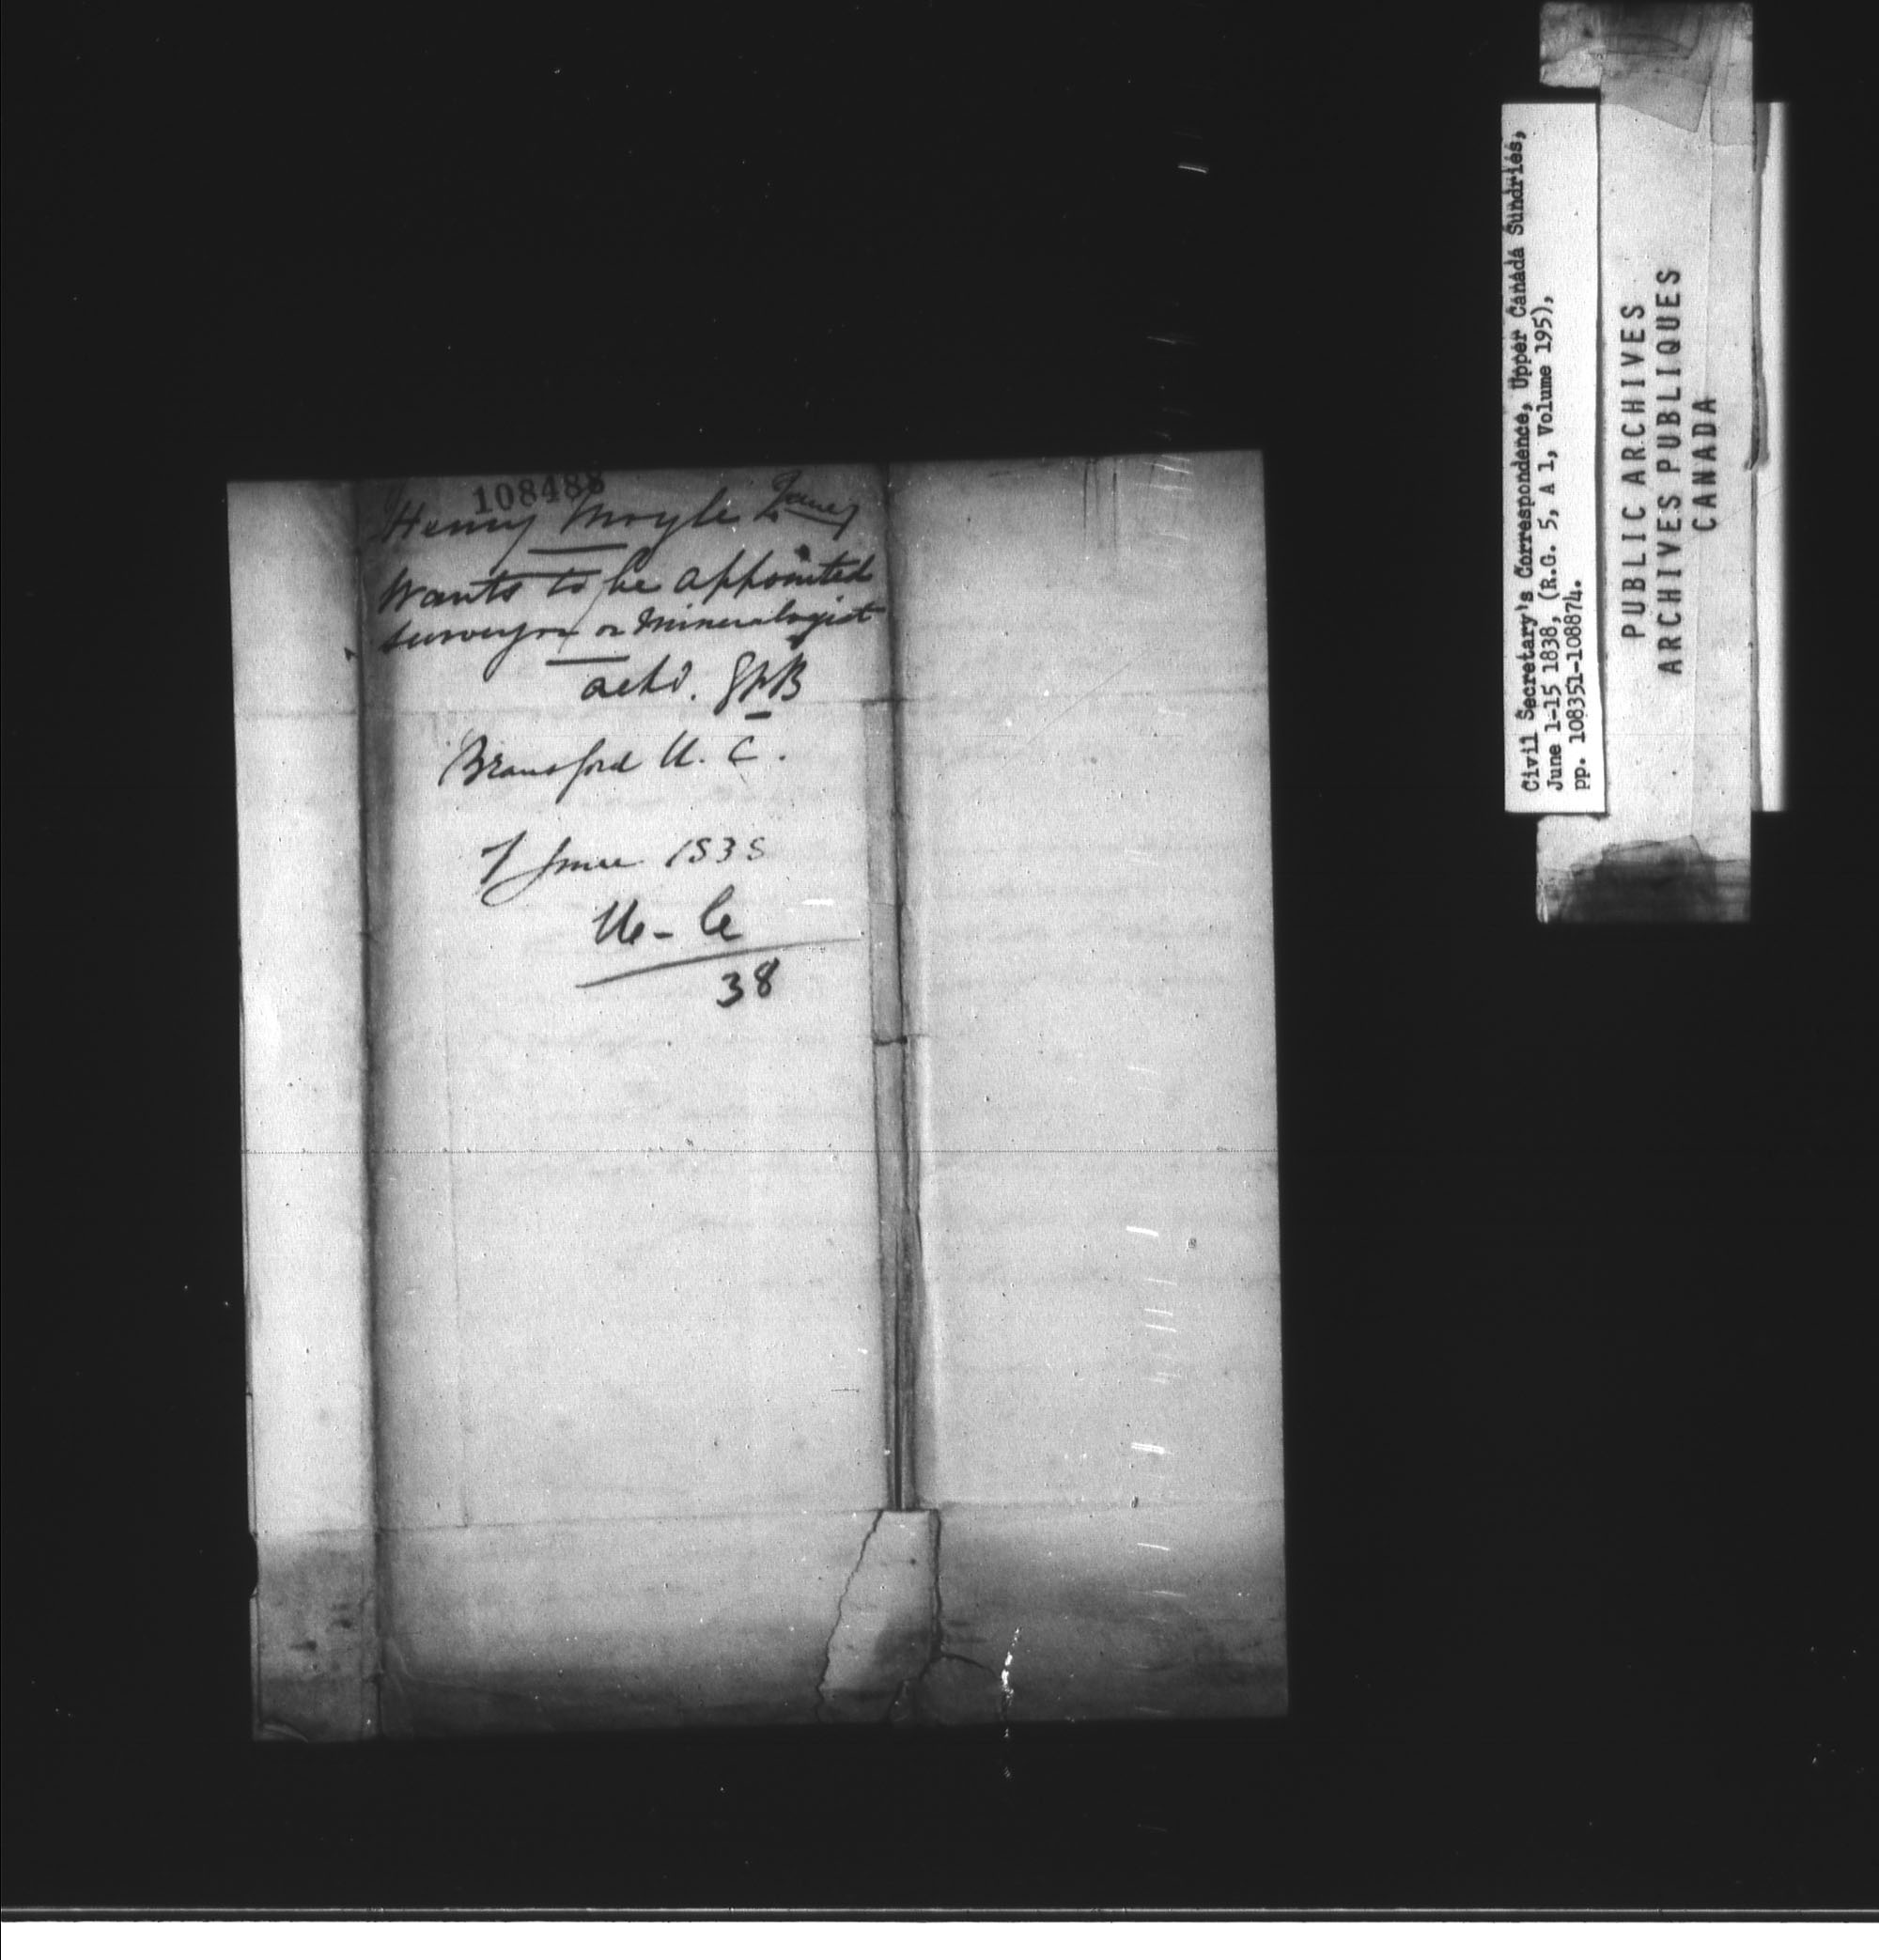 108488
Henry Moyle
Wants to be appointed
surveyor or Mineralogist
Brantford U. C.
7 June 1838
U. C
38
Civil Secretary's Correspondence, Upper Canada Sundries,
June 1-15 1838, (R.G. 5, A 1, Volume 195),
pp. 108351-108874.
PUBLIC ARCHIVES
ARCHIVES PUBLIQUES
CANADA